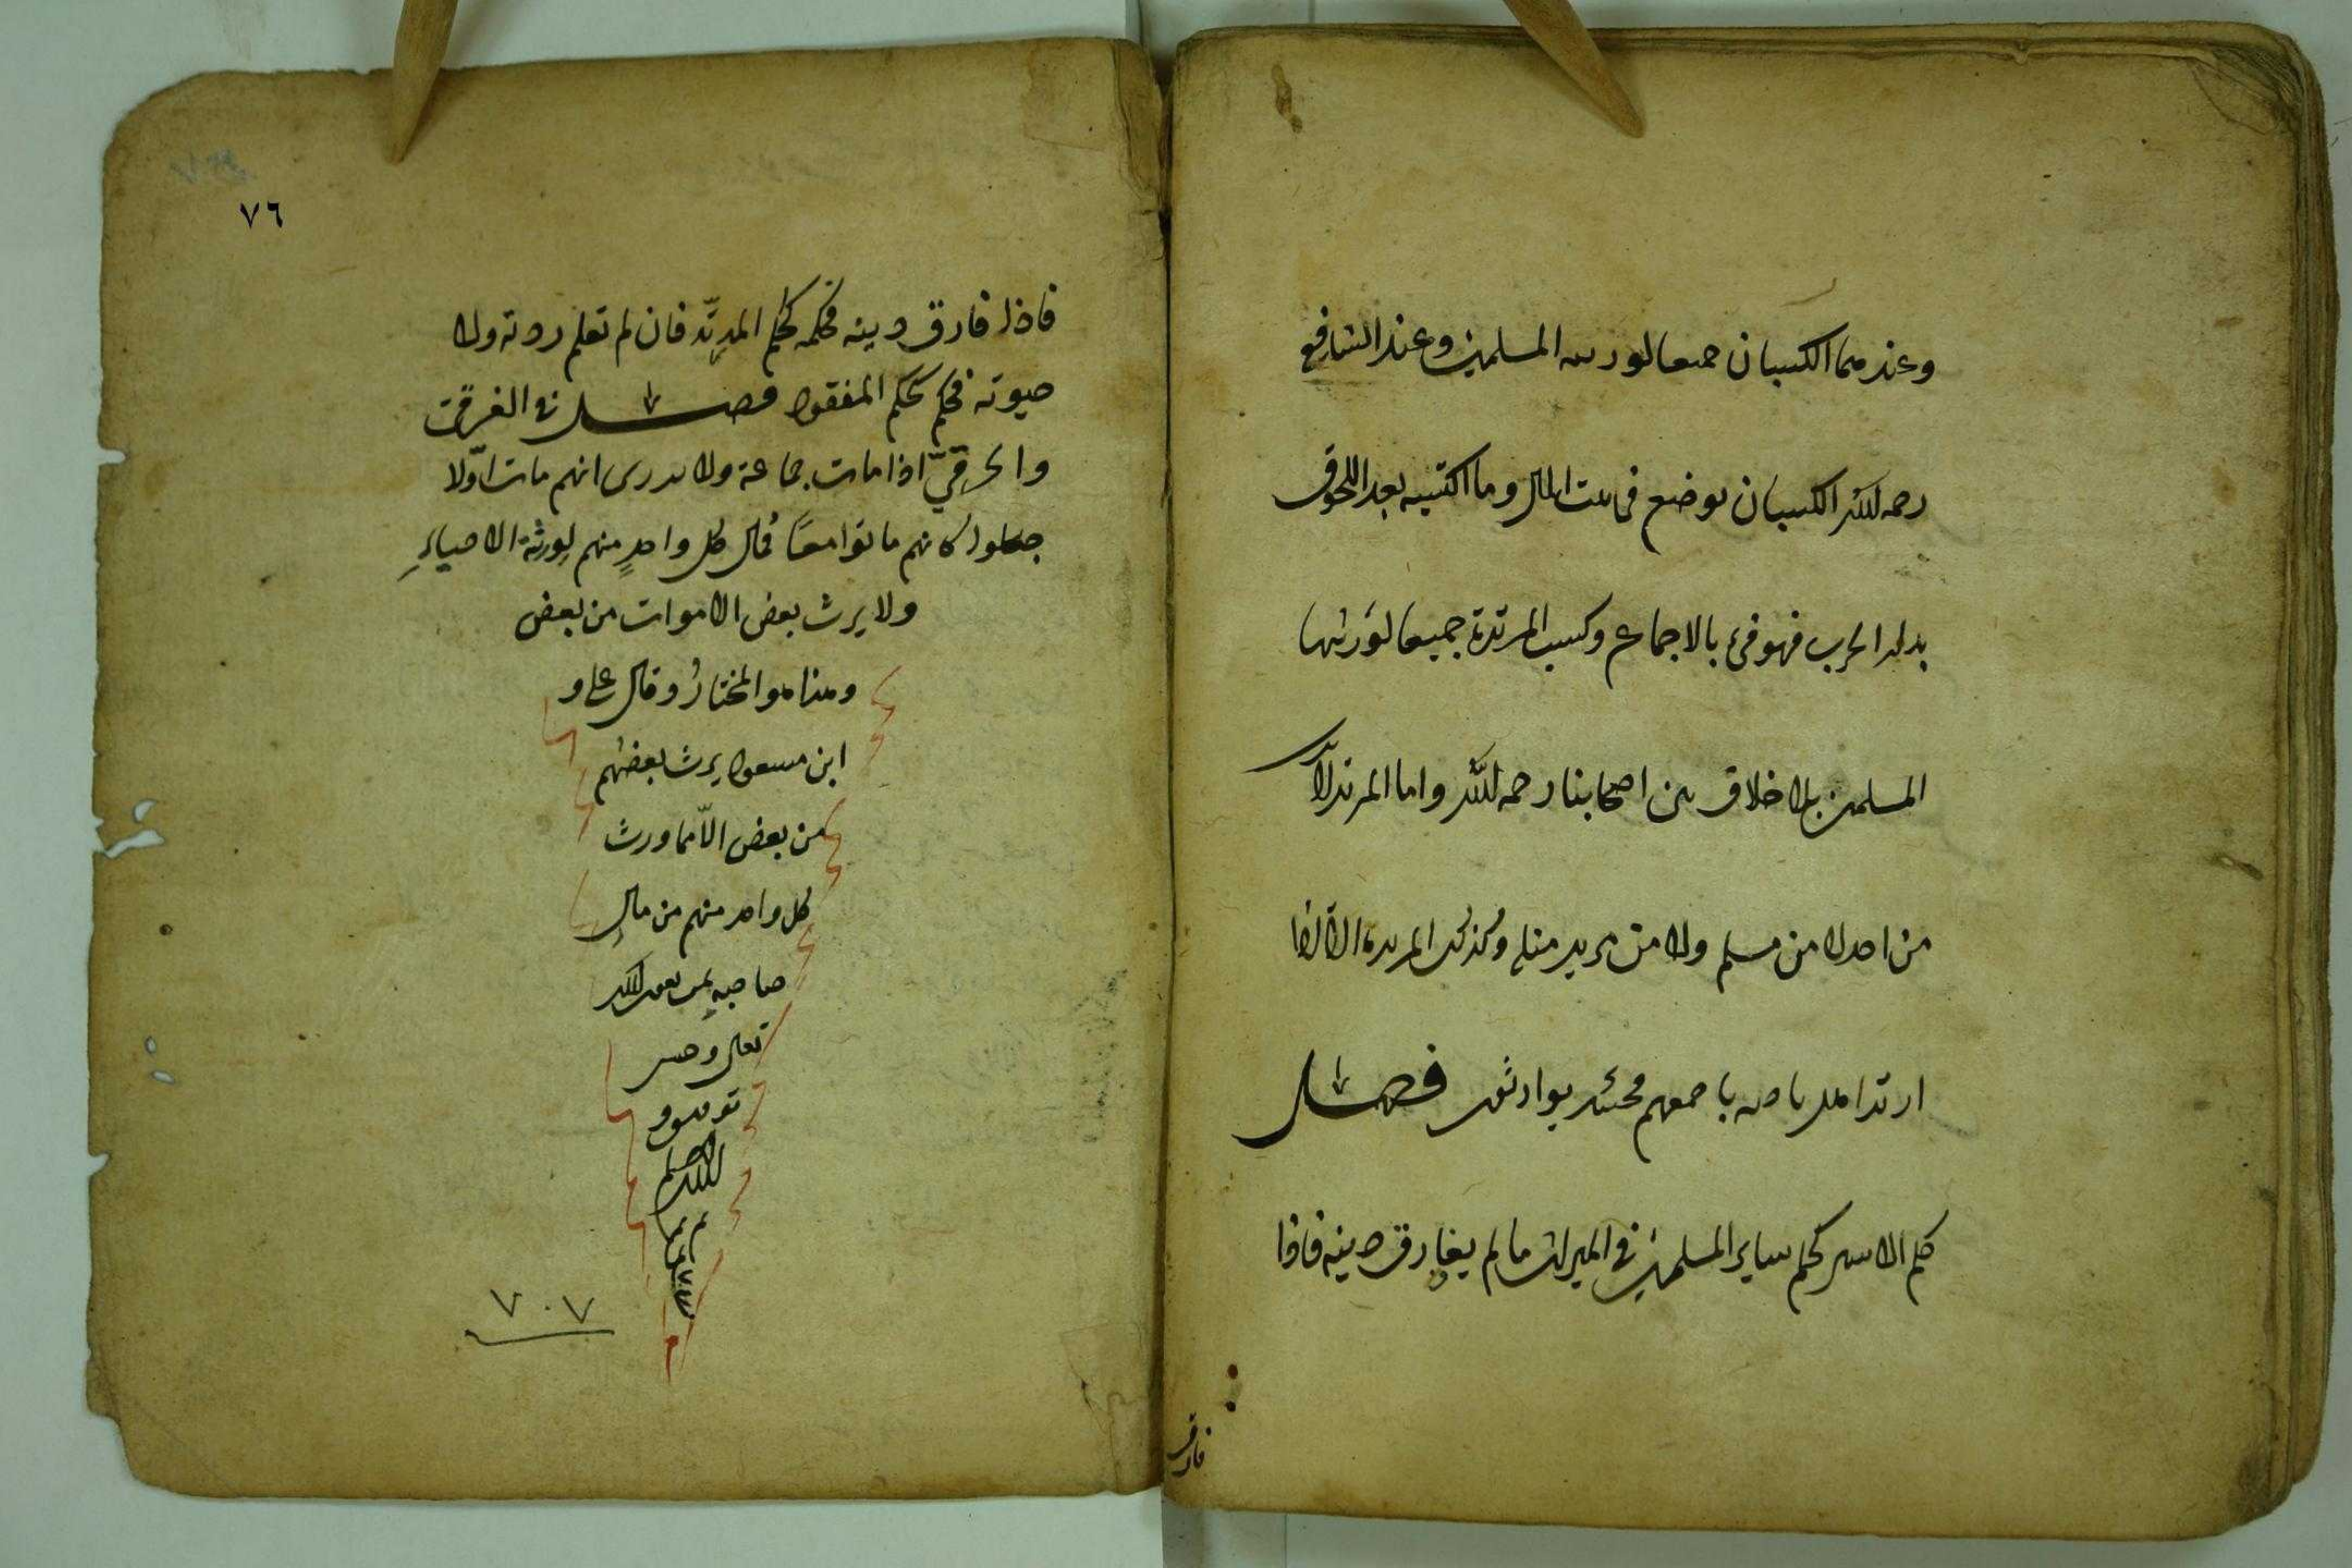 وعندهما الكسبان جميعا لورثته المسلمين وعند الشافعي
رحمه الله الكسبان يوضع في بيت المال وما اكتسبه بعد اللحوق
بدار الحرب فهو فيء بالاجماع وكسب المرتدة جميعا لورثتها
المسلمين بلا خلاف بين اصحابنا رحمه الله واما المرتد لا يرث
من احد لا من مسلم ولا من مرتد مثله وكذلك المرتدة الا اذا
ارتد اهل ناحية باجمعهم فحينئذ يوارثون فصل
حكم الاسير كحكم ساير المسلمين في الميراث ما لم يفارق دينه فاذا
فارق
٧٦
فاذا فارق دينه فحكمه كحكم المرتد فان لم تعلم ردته ولا
حيوته فحكم كحكم المفقود فصل في الغرقى
والحرقيّ اذا مات جماعة ولا يدرى انهم مات اوّلا
جعلوا كانهم ماتوا معًا فمال كل واحدٍ منهم لورثة الاحياءِ
ولا يرث بعض الاموات من بعض
وهذا هو المختارُ وقال على و
ابن مسعود يرث بعضهم
من بعض الّا مما ورث
كل واحد منهم من مالِ
صاحبه بعون الله
تعالى وحسن
توفيقه و
الله اعلم
٧٠٧